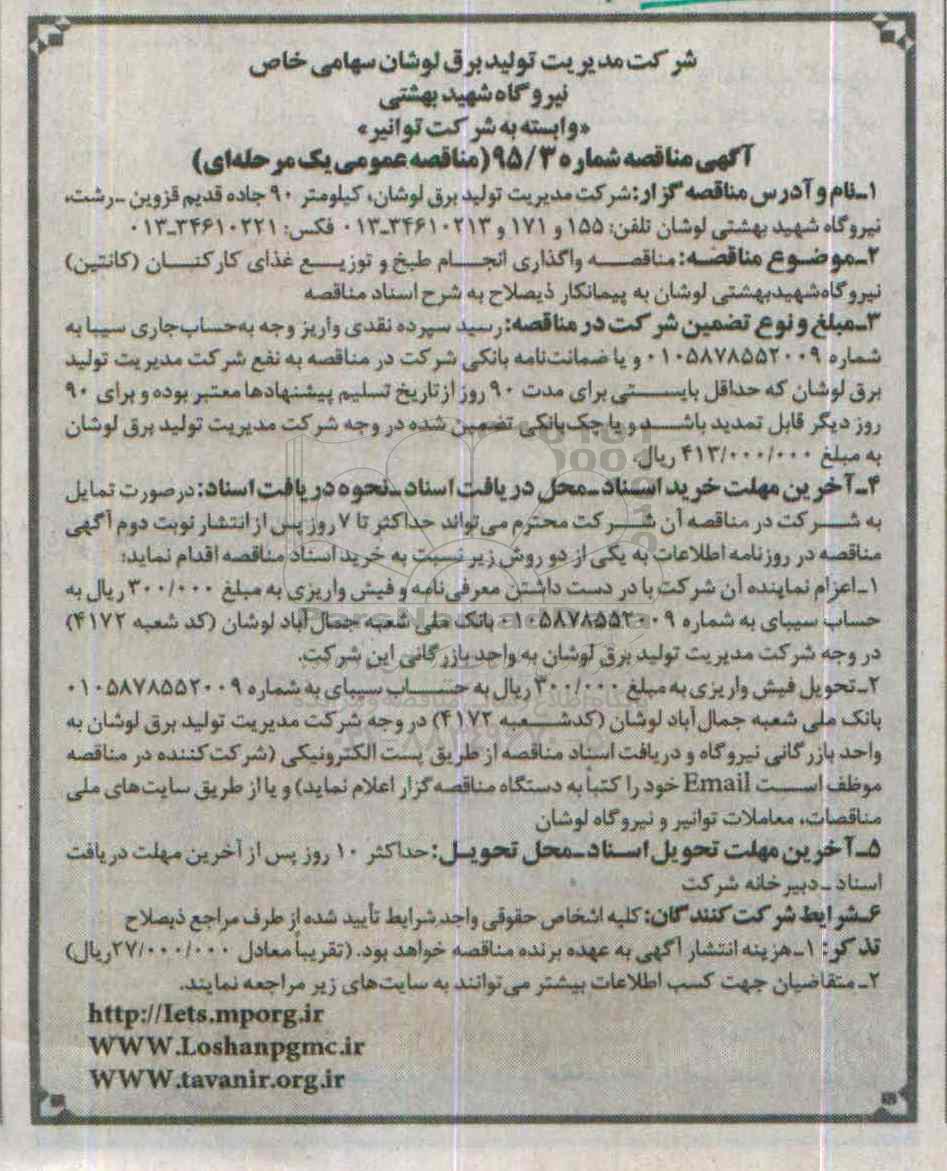 شرکت مدیریت تولید برق لوشان سهامی خاص
نیروگاه شهید بهشتی
«وابسته به شرکت توانیر»
آگهی مناقصه شماره ۹۵/۳ (مناقصه عمومی یک مرحله‌ای)
۱ـ نام و آدرس مناقصه گزار: شرکت مدیریت تولید برق لوشان، کیلومتر ۹۰ جاده قدیم قزوین ـ رشت،
نیروگاه شهید بهشتی لوشان تلفن: ۱۵۵ و ۱۷۱ و ۳۴۶۱۰۲۱۳ـ۰۱۳ فکس: ۳۴۶۱۰۲۲۱ـ۰۱۳
۲ـ موضوع مناقصه: مناقصه واگذاری انجام طبخ و توزیع غذای کارکنان (کانتین)
نیروگاه شهیدبهشتی لوشان به پیمانکار ذیصلاح به شرح اسناد مناقصه
۳ـ مبلغ و نوع تضمین شرکت در مناقصه: رسید سپرده نقدی واریز وجه به‌حساب‌جاری سیبا به
شماره ۰۱۰۵۸۷۸۵۵۲۰۰۹ و یا ضمانت‌نامه بانکی شرکت در مناقصه به نفع شرکت مدیریت تولید
برق لوشان که حداقل بایستی برای مدت ۹۰ روز از تاریخ تسلیم پیشنهادها معتبر بوده و برای ۹۰
روز دیگر قابل تمدید باشد و یا چک بانکی تضمین شده در وجه شرکت مدیریت تولید برق لوشان
به مبلغ ۴۱۳/۰۰۰/۰۰۰ ریال.
۴ـ آخرین مهلت خرید اسناد ـ محل دریافت اسناد ـ نحوه دریافت اسناد: درصورت تمایل
به شرکت در مناقصه آن شرکت محترم می‌تواند حداکثر تا ۷ روز پس از انتشار نوبت دوم آگهی
مناقصه در روزنامه اطلاعات به یکی از دو روش زیر نسبت به خرید اسناد مناقصه اقدام نماید:
۱ـ اعزام نماینده آن شرکت با در دست داشتن معرفی‌نامه و فیش واریزی به مبلغ ۳۰۰/۰۰۰ ریال به
حساب سیبای به شماره ۰۱۰۵۸۷۸۵۵۲۰۰۹ بانک ملی شعبه جمال‌آباد لوشان (کد شعبه ۴۱۷۲)
در وجه شرکت مدیریت تولید برق لوشان به واحد بازرگانی این شرکت.
۲ـ تحویل فیش واریزی به مبلغ ۳۰۰/۰۰۰ ریال به حساب سیبای به شماره ۰۱۰۵۸۷۸۵۵۲۰۰۹
بانک ملی شعبه جمال‌آباد لوشان (کدشعبه ۴۱۷۲) در وجه شرکت مدیریت تولید برق لوشان به
واحد بازرگانی نیروگاه و دریافت اسناد مناقصه از طریق پست الکترونیکی (شرکت‌کننده در مناقصه
موظف است Email خود را کتباً به دستگاه مناقصه‌گزار اعلام نماید) و یا از طریق سایت‌های ملی
مناقصات، معاملات توانیر و نیروگاه لوشان
۵ـ آخرین مهلت تحویل اسناد ـ محل تحویل: حداکثر ۱۰ روز پس از آخرین مهلت دریافت
اسناد ـ دبیرخانه شرکت
۶ـ شرایط شرکت کنندگان: کلیه اشخاص حقوقی واجد شرایط تأیید شده از طرف مراجع ذیصلاح
تذکر: ۱ـ هزینه انتشار آگهی به عهده برنده مناقصه خواهد بود. (تقریباً معادل ۲۷/۰۰۰/۰۰۰ریال)
۲ـ متقاضیان جهت کسب اطلاعات بیشتر می‌توانند به سایت‌های زیر مراجعه نمایند.
http://Iets.mporg.ir
WWW.Loshanpgmc.ir
WWW.tavanir.org.ir